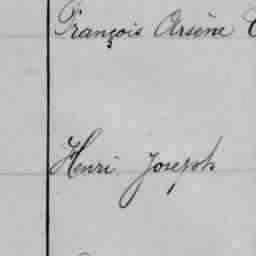 François Arsène
Henri Joseph